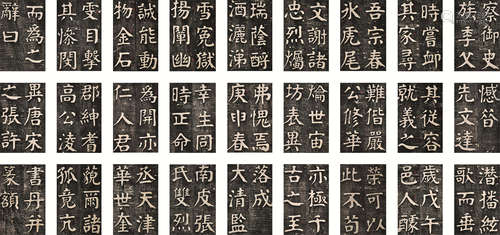 察御史
族季父
時嘗邮
其家尋
吾宗春
冰虎尾
文謝諸
忠烈燭
瑞蔭醇
酒灑涕
雪冤獄
揚闡幽
誠能動
物金石
雯目擊
其慘閔
而為之
辭曰
憾谷
先文達
其從容
就義之
難偕嚴
公修華
世宙
坊表異
弗愧焉
庚申春
幸生同
時正命
為開亦
仁人言
郡紳耆
高公淩
異唐宋
之張許
潜播絃
歌而垂
歲戊午
邑人醵
榮可以
此不苟
亦極千
古之至
落成
大清監
南皮張
氏雙烈
丞天津
華世奎
藐爾諸
孤竟亢
書丹并
篆額